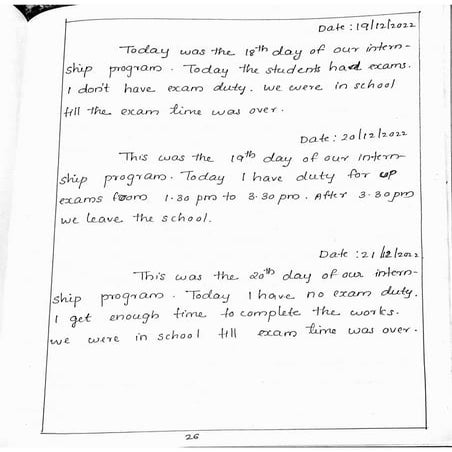 Date : 19/12/2022
Today was the 18th day of our intern-
ship program. Today the students had exams.
I don't have exam duty. we were in school
till the exam time was over.
Date : 20/12/2022
This was the 19th day of our intern-
ship program. Today I have duty for up
exams from 1.30 pm to 3.30 pm. After 3.30 pm
we leave the school.
Date : 21/12/2022
This was the 20th day of our intern-
ship program. Today I have no exam duty.
I get enough time to complete the works.
we were in school till exam time was over.
26